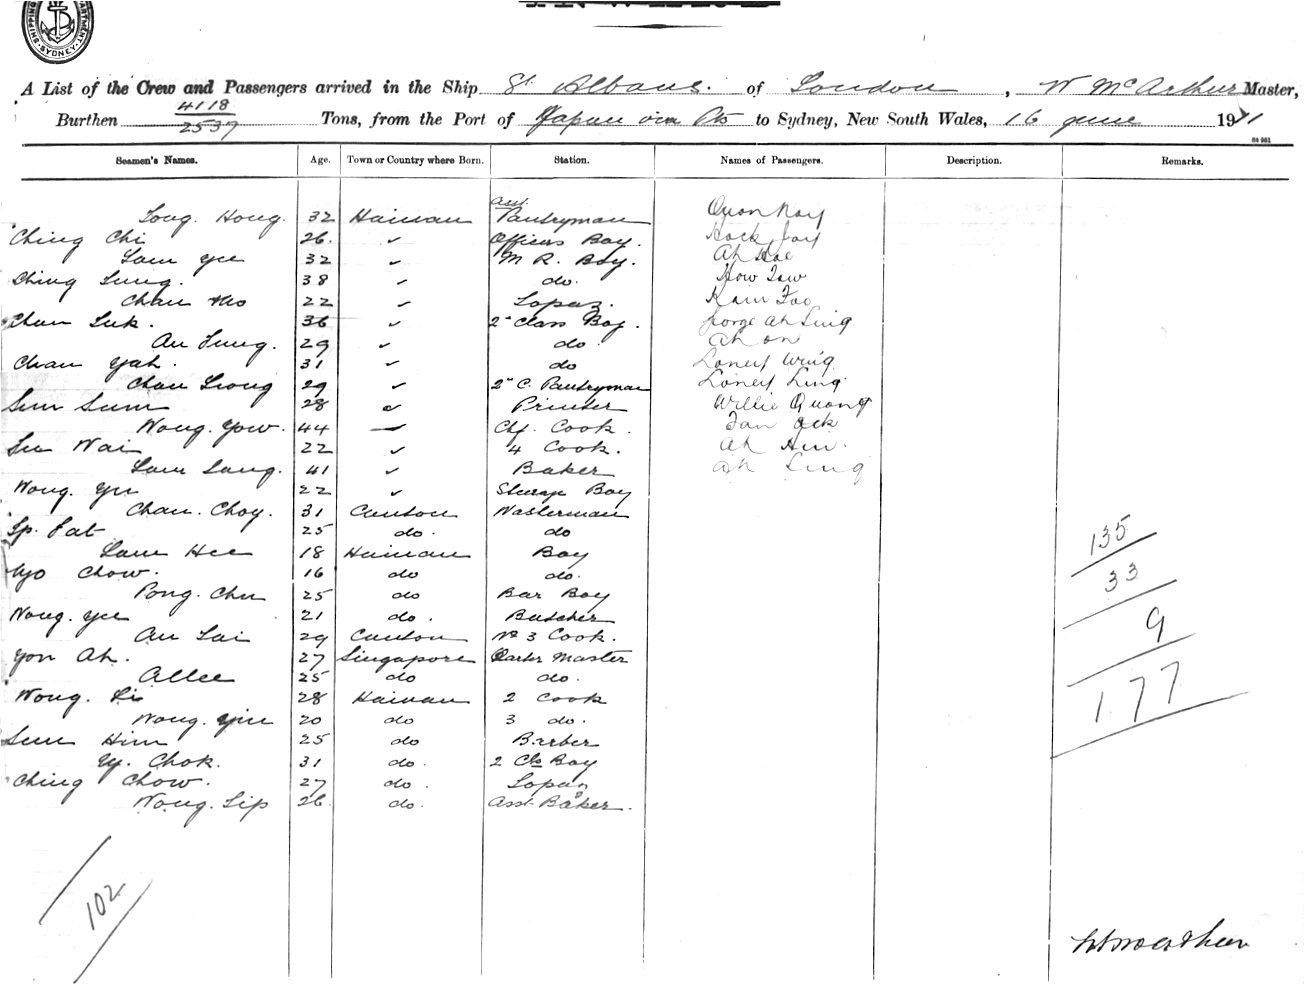 SHIPPING DEPARTMENT SYDNEY
A List of the Crew and Passengers arrived in the Ship St. Albans. of London, W McArthur Master,
Burthen 4118 / 2537 Tons, from the Port of Japan via Pts to Sydney, New South Wales, 16 June 1911
Seamen's Names. Age. Town or Country where Born. Station. Names of Passengers. Description. Remarks.
Long. Hong. 32 Hainan Asst. Pantryman Quon Kay
Ching Chi 26. ✓ Officers Boy. Hock Joy
Lam Yee 32 ✓ M R. Boy. Ah
Ching Sung. 38 ✓ do. How Tow
Chan Mo 22 ✓ Lopaz. Kam Foo
Chan Luk. 36 ✓ 2nd Class Boy. George Ah Ling
Au Fung. 29 ✓ do Ah on
Chan Yah. 31 ✓ do Loney Wing
Chan Leong 29 ✓ 2nd C. Pantryman Loney Ling
Sum Sum 28 ✓ Printer Willie Quong
Wong. Yow. 44 Chf. Cook. Ock
Lee Wai 22 ✓ 4 Cook. Ah Him.
Lam Sang. 41 ✓ Baker Ah Ling
Wong. Yee 22 ✓ Boy
Chan. Choy. 31 Canton Wasterman
Ip. Fat 25 do. do
Lam Hee 18 Hainan Boy
Chow. 16 do do.
Pong. Chu 25 do Bar Boy
Wong. Yee 21 do. Butcher
Au Lai 29 Canton No 3 Cook.
Yon Ah. 27 Singapore Qarter Master
Allee 25 do do.
Wong. Li 28 Hainan 2 Cook
Wong. Yin 20 do 3 do.
Sum Him 25 do Barber
Yy. Chok. 31 do. 2 Cls Boy
Ching Chow. 27 do. Lopan
Wong. Sip 26 do. Asst. Baker.
135
33
9
177
102
W McArthur